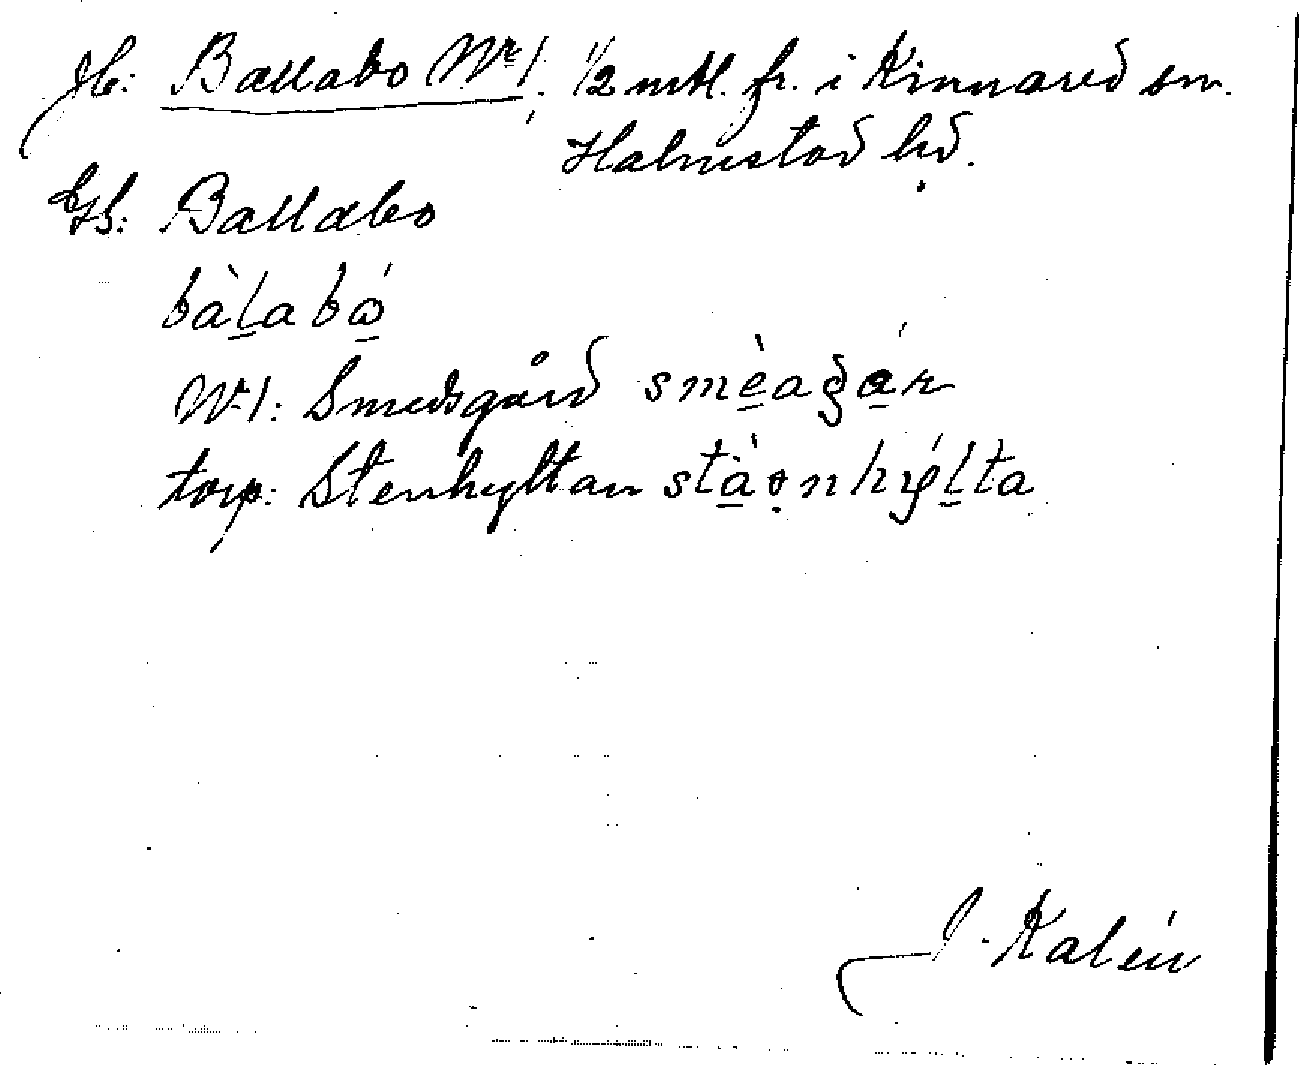 Jb: Ballabo Nr 1. 1/2 mtl. fr. i Kinnared sn.
Halmstad hd.
Gs: Ballabo
bàḻabó̱
Nr 1: Smedsgård smè̱aga̱r
torp: Stenhyltan stà̱ənhýḻta
J. Kalén